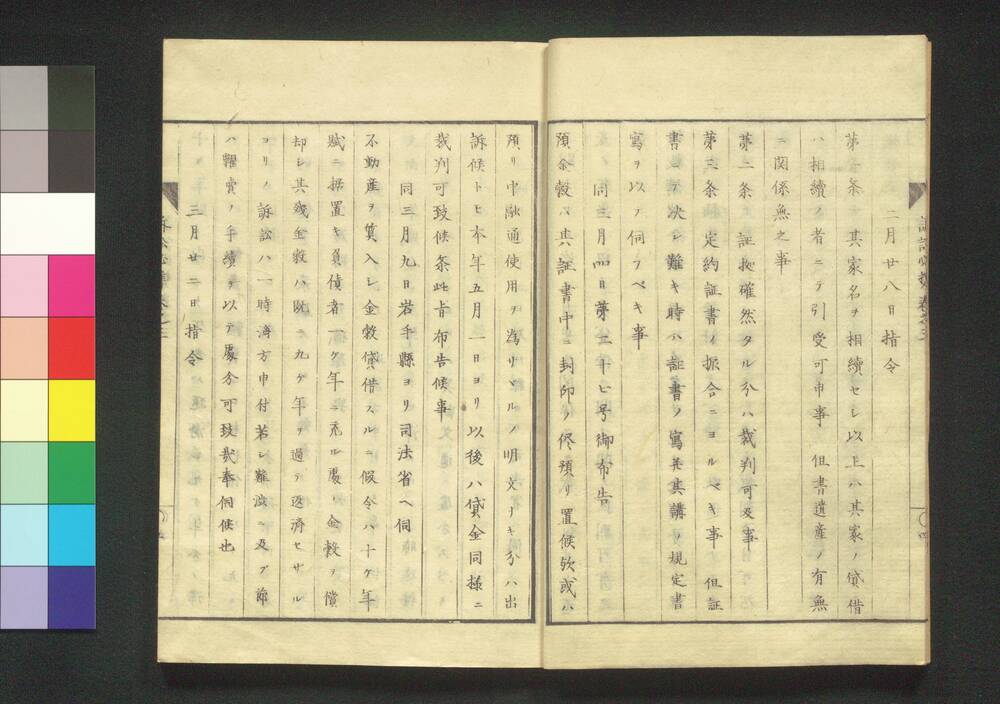 二月廿八日指令
第一条 其家名ヲ相續セシ以上ハ其家ノ貸借
ハ相續ノ者ニテ引受可申事 但書遺産ノ有無
ニ関係無之事
第二条 証拠確然タル分ハ裁判可及事
第三条 定約証書ノ振合ニヨルベキ事 但証
書ニテ决シ難キ時ハ証書ノ寫并其講ノ規定書
寫ヲ以テ伺フベキ事
同三月四日第二十七号御布告
預金穀ハ其証書中ニ封印ノ侭預リ置候欤或ハ
預リ中融通使用ヲ為サヾルノ明文ナキ分ハ出
訴候トモ本年五月一日ヨリ以後ハ貸金同様ニ
裁判可致候条此旨布告候事
同三月九日岩手縣ヨリ司法省ヘ伺
不動産ヲ質入シ金穀貸借スルニ假令ハ十ケ年
賦ニ据置キ負債者一ケ年ニ充ル處ノ金穀ヲ償
却シ其残金穀ハ既ニ九ケ年ヲ過テ返済セザル
ヨリノ訴訟ハ一時済方申付若シ難渋ニ及ブ節
ハ糶賣ノ手續ヲ以テ處分可致哉奉伺候也
三月廿二日指令